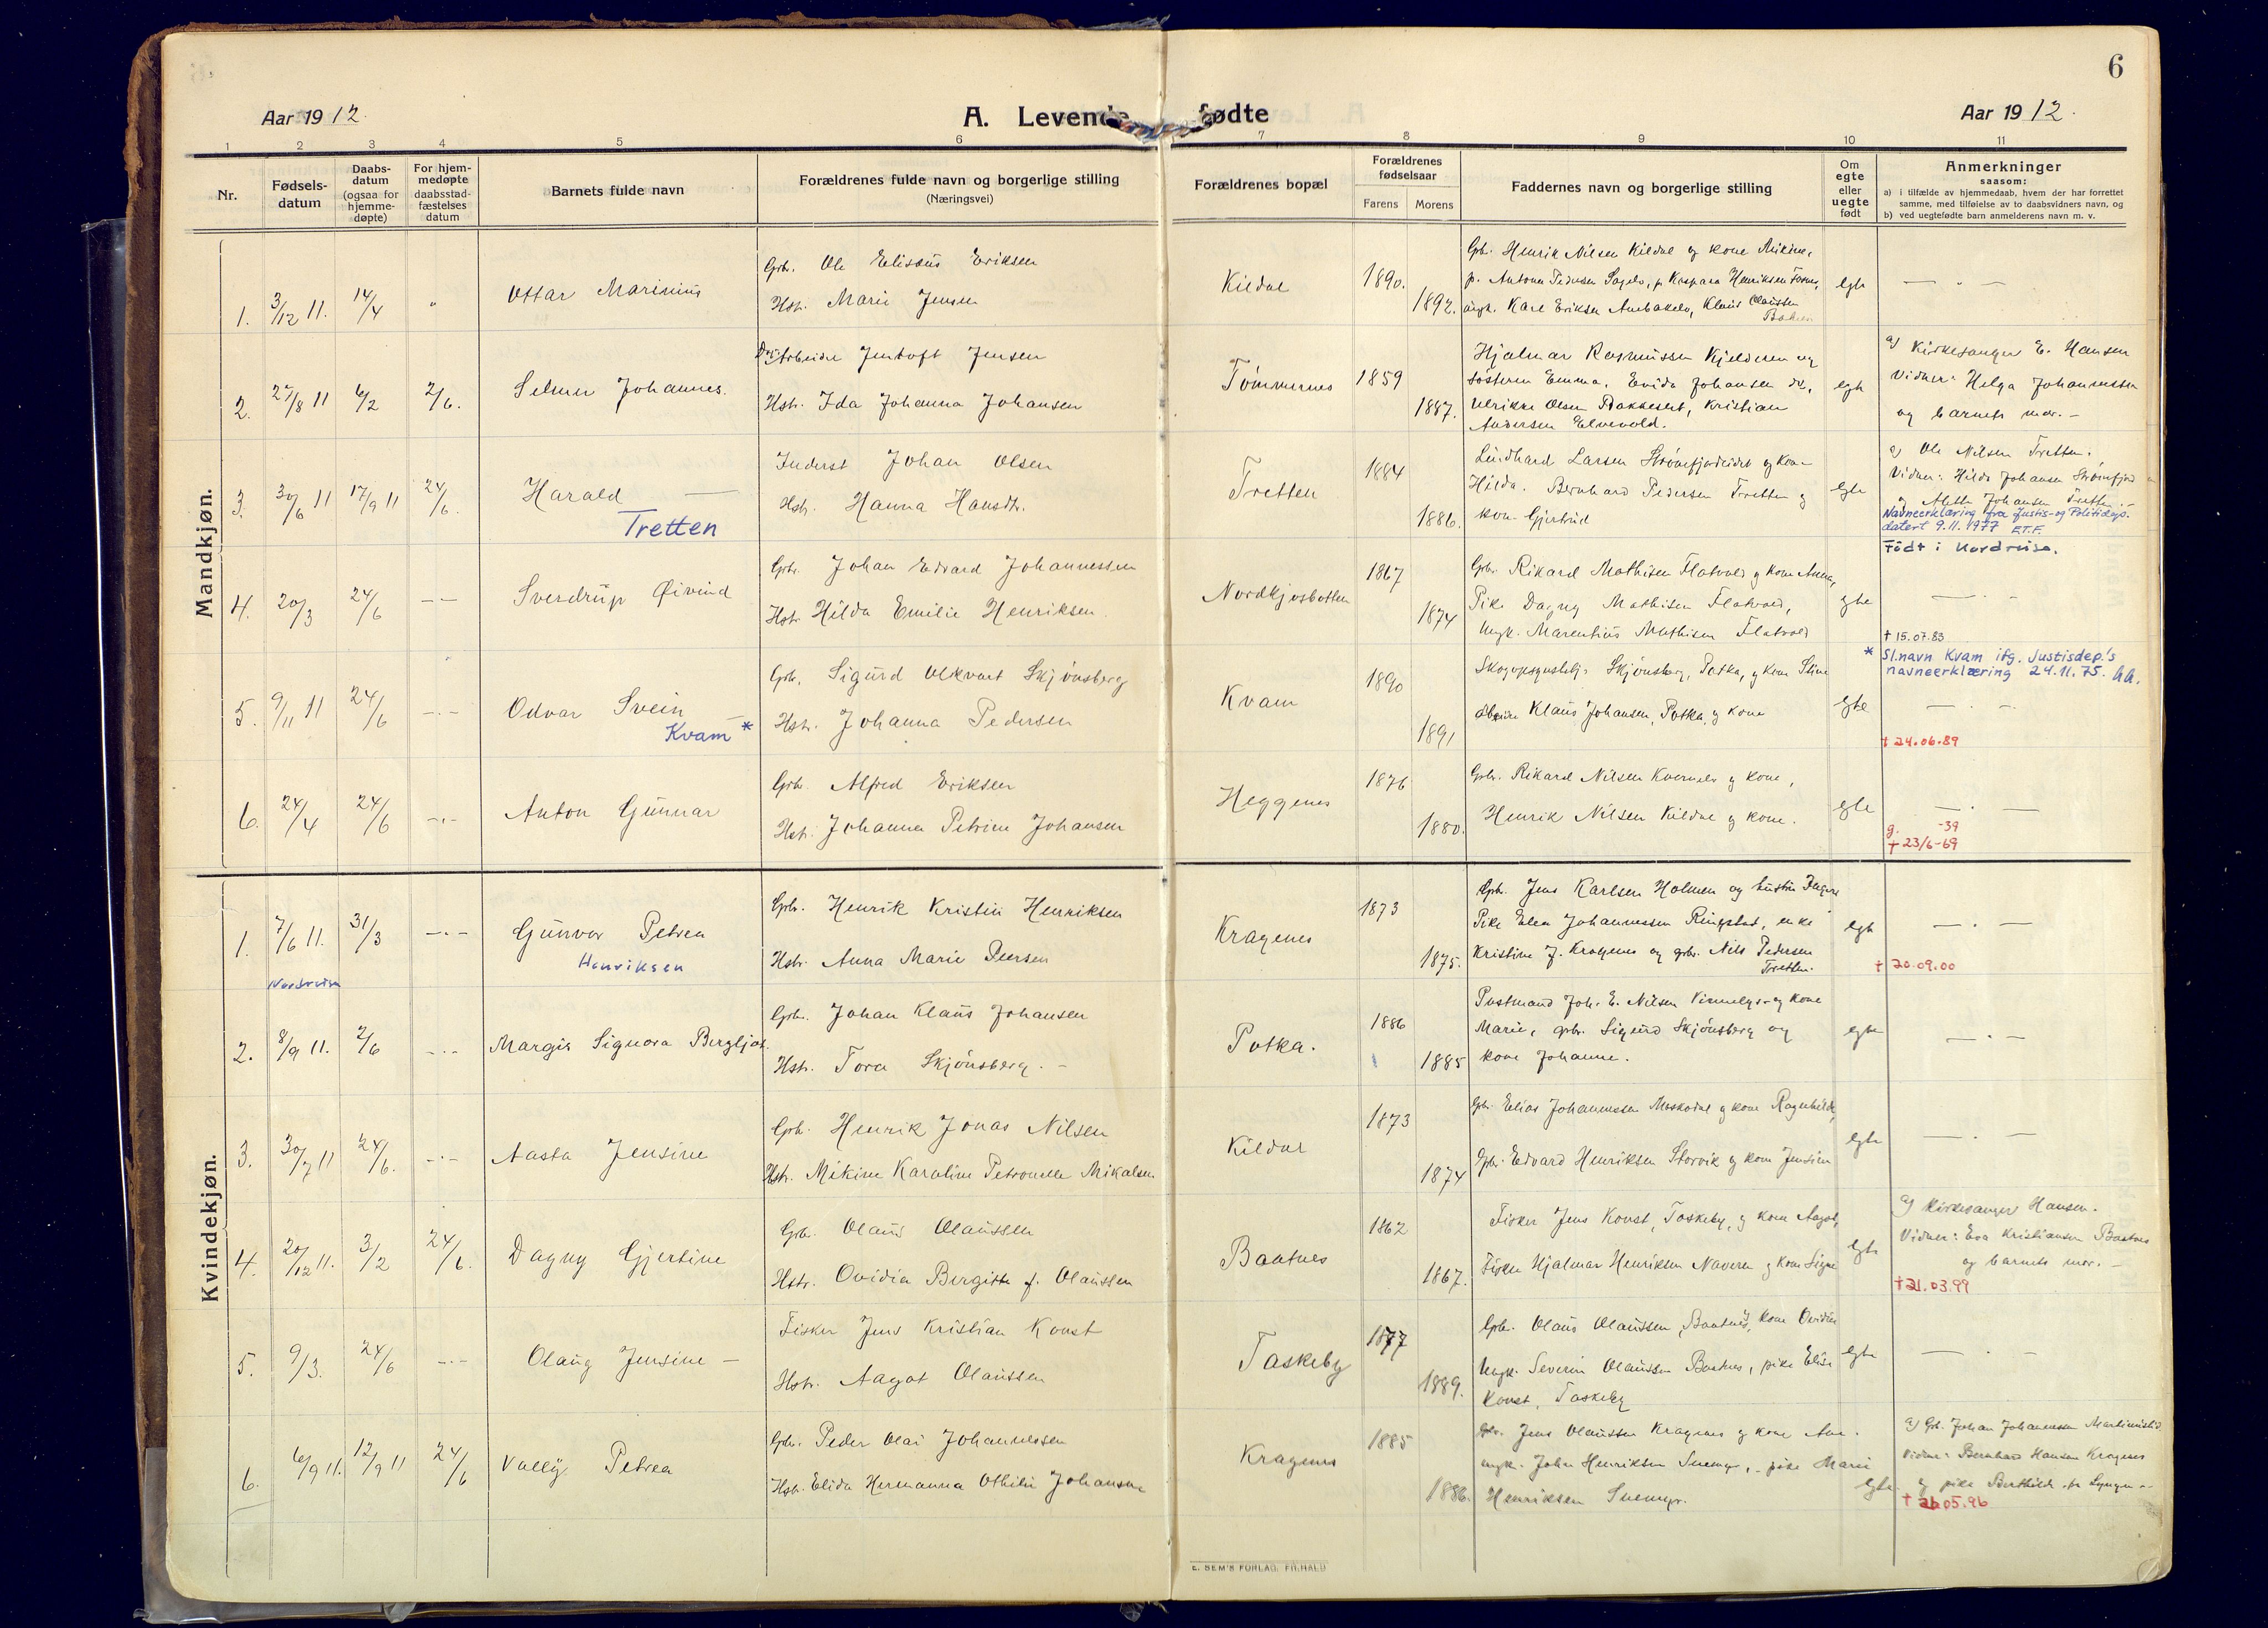 6
Aar 1912.
A. Levende fødte
Aar 1912.
1 2 3 4 5 6 7 8 9 10 11
Nr.
Fødsels-
datum
Daabs-
datum
(ogsaa for
hjemme-
døpte)
For hjem-
medøpte
daabsstad-
fæstelses
datum
Barnets fulde navn
Forældrenes fulde navn og borgerlige stilling
(Næringsvei)
Forældrenes bopæl
Forældrenes
fødselsaar
Farens Morens
Faddernes navn og borgerlige stilling
Om
egte
eller
uegte
født
Anmerkninger
saasom:
a) i tilfælde av hjemmedaab, hvem der har forrettet
samme, med tilføielse av to daabsvidners navn, og
b) ved uegtefødte barn anmelderens navn m. v.
Mandkjøn.
1. 3/12 11. 14/4 "
Ottar Marinius
Grb. Ole Elisæus Eriksen
Hstr. Marie Jensen
Kildal
1890.
1892.
Grb. Henrik Nilsen Kildal og kone Mikine,
p. Antona Pedersen
ungk. Karl Eriksen
egte
— " —
2. 27/8 11 6/2 2/6.
Selmer Johannes.
Arbeider Jentoft Jensen
Hstr. Ida Johanna Johansen
Tømmernes
1859
1887.
Hjalmar Rasmussen Kjelderen og
søsteren Emma, Evida Johansen
Ulrikke Olsen Bakkeslet, Kristian
Andersen Elvevold.
egte
a) Kirkesanger E. Hansen
Vidner: Helga Johannessen
og barnets mor. -
3. 30/6 11 17/9 11 24/6.
Harald —
Tretten
Inderst Johan Olsen
Hstr. Hanna Hansdtr.
Tretten
1884
1886.
Lindhard Larsen Strømfjordeidet og kone
Hilda. Bernhard Pedersen Tretten og
kone Gjertrud
egte
a) Ole Nilsen Tretten.
Vidner: Hilda Johansen Strømfjord
og Alette Johansen Tretten. -
Navneerklæring fra Justis- og Politidep.
datert 9.11.1977 E.T.F.
Født i Nordreisa.
4. 20/3 24/6 — —
Sverdrup Øivind
Grb. Johan Edvard Johannessen
Hstr. Hilda Emilie Henriksen.
Nordkjosbotten
1867
1874
Grb. Rikard Mathisen Flatvold og kone Anna,
Pike Dagny Mathisen Flatvold,
Ungk. Marentius Mathisen Flatvold
egte
— " —
† 15.07.83
* Sl.navn Kvam ifg. Justisdep.'s
navneerklæring 24.11.75. hh.
5. 9/11 11 24/6 —"—
Odvar Svein —
Kvam *
Grb. Sigurd Olkvart Skjønsberg
Hstr. Johanna Pedersen
Kvam
1890
1891
Skjønsberg, Potka, og kone Stine
Klaus Johansen, Potka, og kone
egte
— " —
† 24.06.89
6. 24/4 24/6 —"—
Anton Gunnar
Grb. Alfred Eriksen
Hstr. Johanna Petrine Johansen
Heggenes
1876
1880.
Grb. Rikard Nilsen Kvernelv og kone,
Henrik Nilsen Kildal og kone.
egte
— " —
g. -39
† 23/6-69
Kvindekjøn.
1. 7/6 11. 31/3 —"—
Nordreisa
Gunvor Petrea
Henriksen
Grb. Henrik Kristin Henriksen
Hstr. Anna Marie Peersen
Kragenes
1873
1875.
Grb. Jens Karlsen Holmen og hustru
Pike Elen Johannessen Ringstad, enke
Kristine J. Kragenes og grb. Nils Pedersen
Tretten.
egte
— " —
† 20.09.00
2. 8/9 11. 2/6 —"—
Margis Signora Bergljot.
Grb. Johan Klaus Johansen
Hstr. Tora Skjønsberg. -
Potka.
1886
1885
Postmand Joh. E. Nilsen og kone
Marie, grb. Sigurd Skjønsberg og
kone Johanne.
egte
— " —
3. 30/7 11 24/6. —"—
Aasta Jensine
Grb. Henrik Jonas Nilsen
Hstr. Mikine Karoline Petronelle Mikalsen
Kildal
1873
1874
Grb. Elias Johannessen Moskodal og kone Ragnhild,
Grb. Edvard Henriksen Storvik og kone Jensine
egte
— " —
4. 20/12 11. 3/2 24/6.
Dagny Gjertine
Grb. Olaus Olaussen
Hstr. Ovidia Bergitte f. Olaussen
Baatnes
1862
1867.
Fisker Jens Konst, Taskeby, og kone Aagot,
Fisker Hjalmar Henriksen Naveren og kone Signe
egte
a) Kirkesanger Hansen.
Vidner: Eva Kristiansen Baatnes
og barnets mor. -
† 21.03.99
5. 9/3. 24/6 —"—
Olaug Jensine —
Fisker Jens Kristian Konst
Hstr. Aagot Olaussen
Taskeby
1877
1889.
Grb. Olaus Olaussen, Baatnes, og kone Ovidia
Ungk. Severin Olaussen Baatnes, pike Elise
Konst, Taskeby
egte
— " —
6. 6/9 11. 12/9 11 24/6
Vally Petrea
Grb. Peder Olai Johannessen
Hstr. Elida Hermanna Othilie Johansen
Kragenes
1885
1886.
Grb. Jens Olaussen Kragenes og kone Ane.
ungk. Johan Henriksen Snemyr, pike Marie
Henriksen Snemyr.
egte
a) Grb. Johan Johannessen
Vidner: Bernhard Hansen Kragenes
og pike Berthilde fr. Lyngen -
† 26.05.96
E. SEM'S FORLAG, FR.HALD